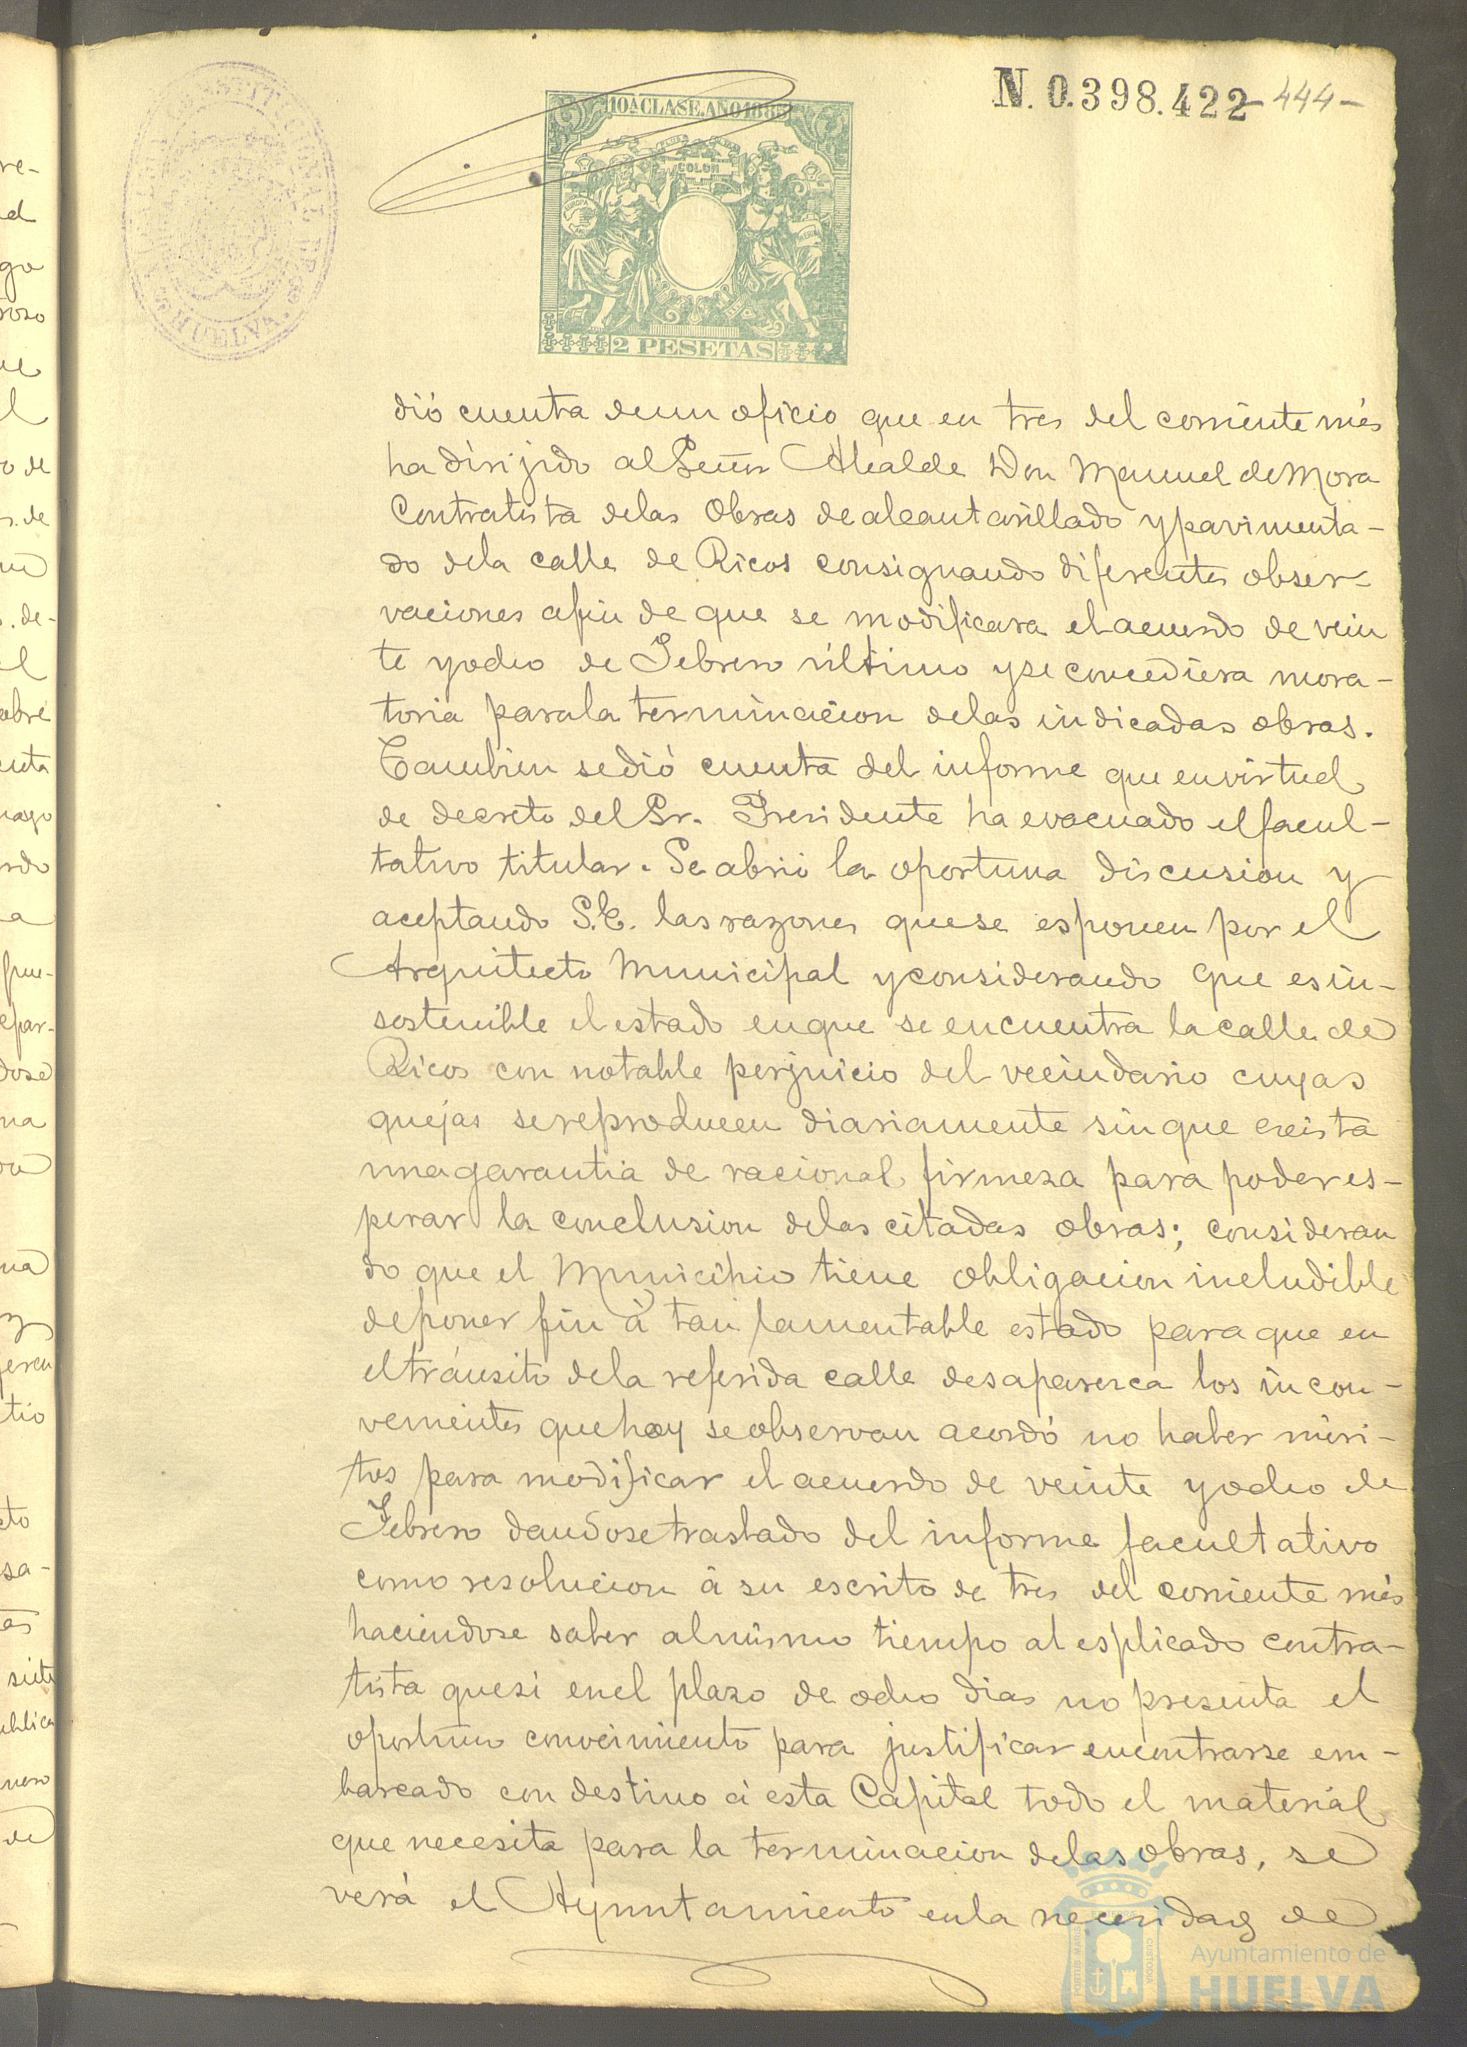 N. 0.398.422 444-
10ª CLASE. AÑO 188
COLON
EUROPA
2 PESETAS
CONSTITUCIONAL DE
HUELVA.
dió cuenta de un oficio que en tres del corriente més
ha dirijido al Señor Alcalde Don Manuel de Mora
Contratista de las Obras de alcantarillado y pavimenta-
do de la calle de Ricos consignando diferentes obser-
vaciones afin de que se modificara el acuerdo de vein
te y ocho de Febrero último y se concediera mora-
toria para la terminacion de las indicadas obras.
Tambien se dió cuenta del informe que en virtud
de decreto del Sr. Presidente ha evacuado el facul-
tativo titular. Se abrió la oportuna discusion y
aceptando S.E. las razones que se esponen por el
Arquitecto Municipal y considerando que es in-
sostenible el estado en que se encuentra la calle de
Ricos con notable perjuicio del vecindario cuyas
quejas se reproducen diariamente sin que exista
una garantia de racional firmeza para poder es-
perar la conclusion de las citadas obras; consideran
do que el Municipio tiene obligacion ineludible
de poner fin á tan lamentable estado para que en
el tránsito de la referida calle desaparezca los incon-
venientes que hoy se observan acordó no haber méri-
tos para modificar el acuerdo de veinte y ocho de
Febrero dandose traslado del informe facultativo
como resolucion á su escrito de tres del corriente més
haciendose saber al mismo tiempo al esplicado contra-
tista que si en el plazo de ocho dias no presenta el
oportuno conocimiento para justificar encontrarse em-
barcado con destino á esta Capital todo el material
que necesita para la terminacion de las obras, se
verá el Ayuntamiento en la necesidad de
Ayuntamiento de
HUELVA